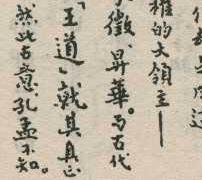 稚的大領主——
徵、昇華。而古代
「王道」就其真正
然此古意，孔孟不知。